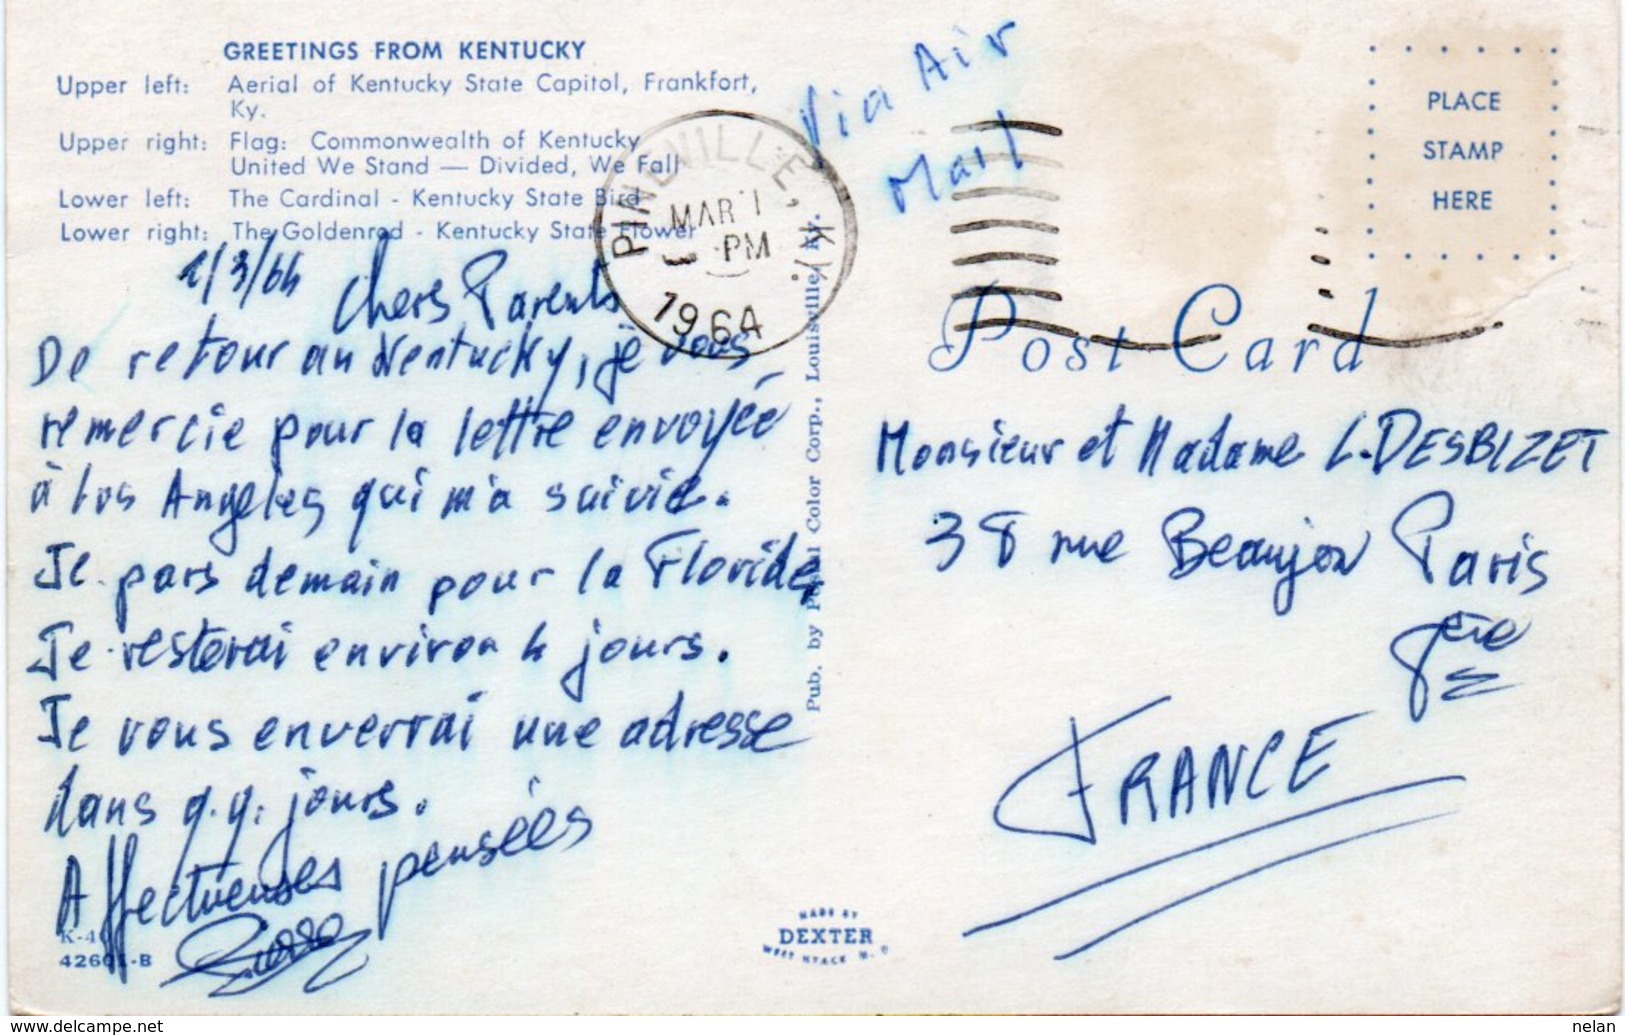 GREETINGS FROM KENTUCKY
Upper left: Aerial of Kentucky State Capitol, Frankfort,
Ky.
Upper right: Flag: Commonwealth of Kentucky
United We Stand — Divided, We Fall
Lower left: The Cardinal - Kentucky State Bird
Lower right: The Goldenrod - Kentucky State Flower
1/3/64
Chers Parents
De retour au Kentucky, je vous
remercie pour la lettre envoyée
à Los Angeles qui m'a suivie.
Je pars demain pour la Floride,
Je resterai environ 4 jours.
Je vous enverrai une adresse
dans q.q. jours.
Affectueuses pensées
Pierre
K-4
42601-B
PINEVILLE, KY.
MAR 1
PM
1964
Pub. by Color Corp., Louisville, Ky.
MADE BY
DEXTER
WEST NYACK N. Y.
Via Air
Mail
PLACE
STAMP
HERE
Post Card
Monsieur et Madame L. DESBIZET
38 rue Beaujon Paris
8ème
FRANCE
https://www.delcampe.net
nelan